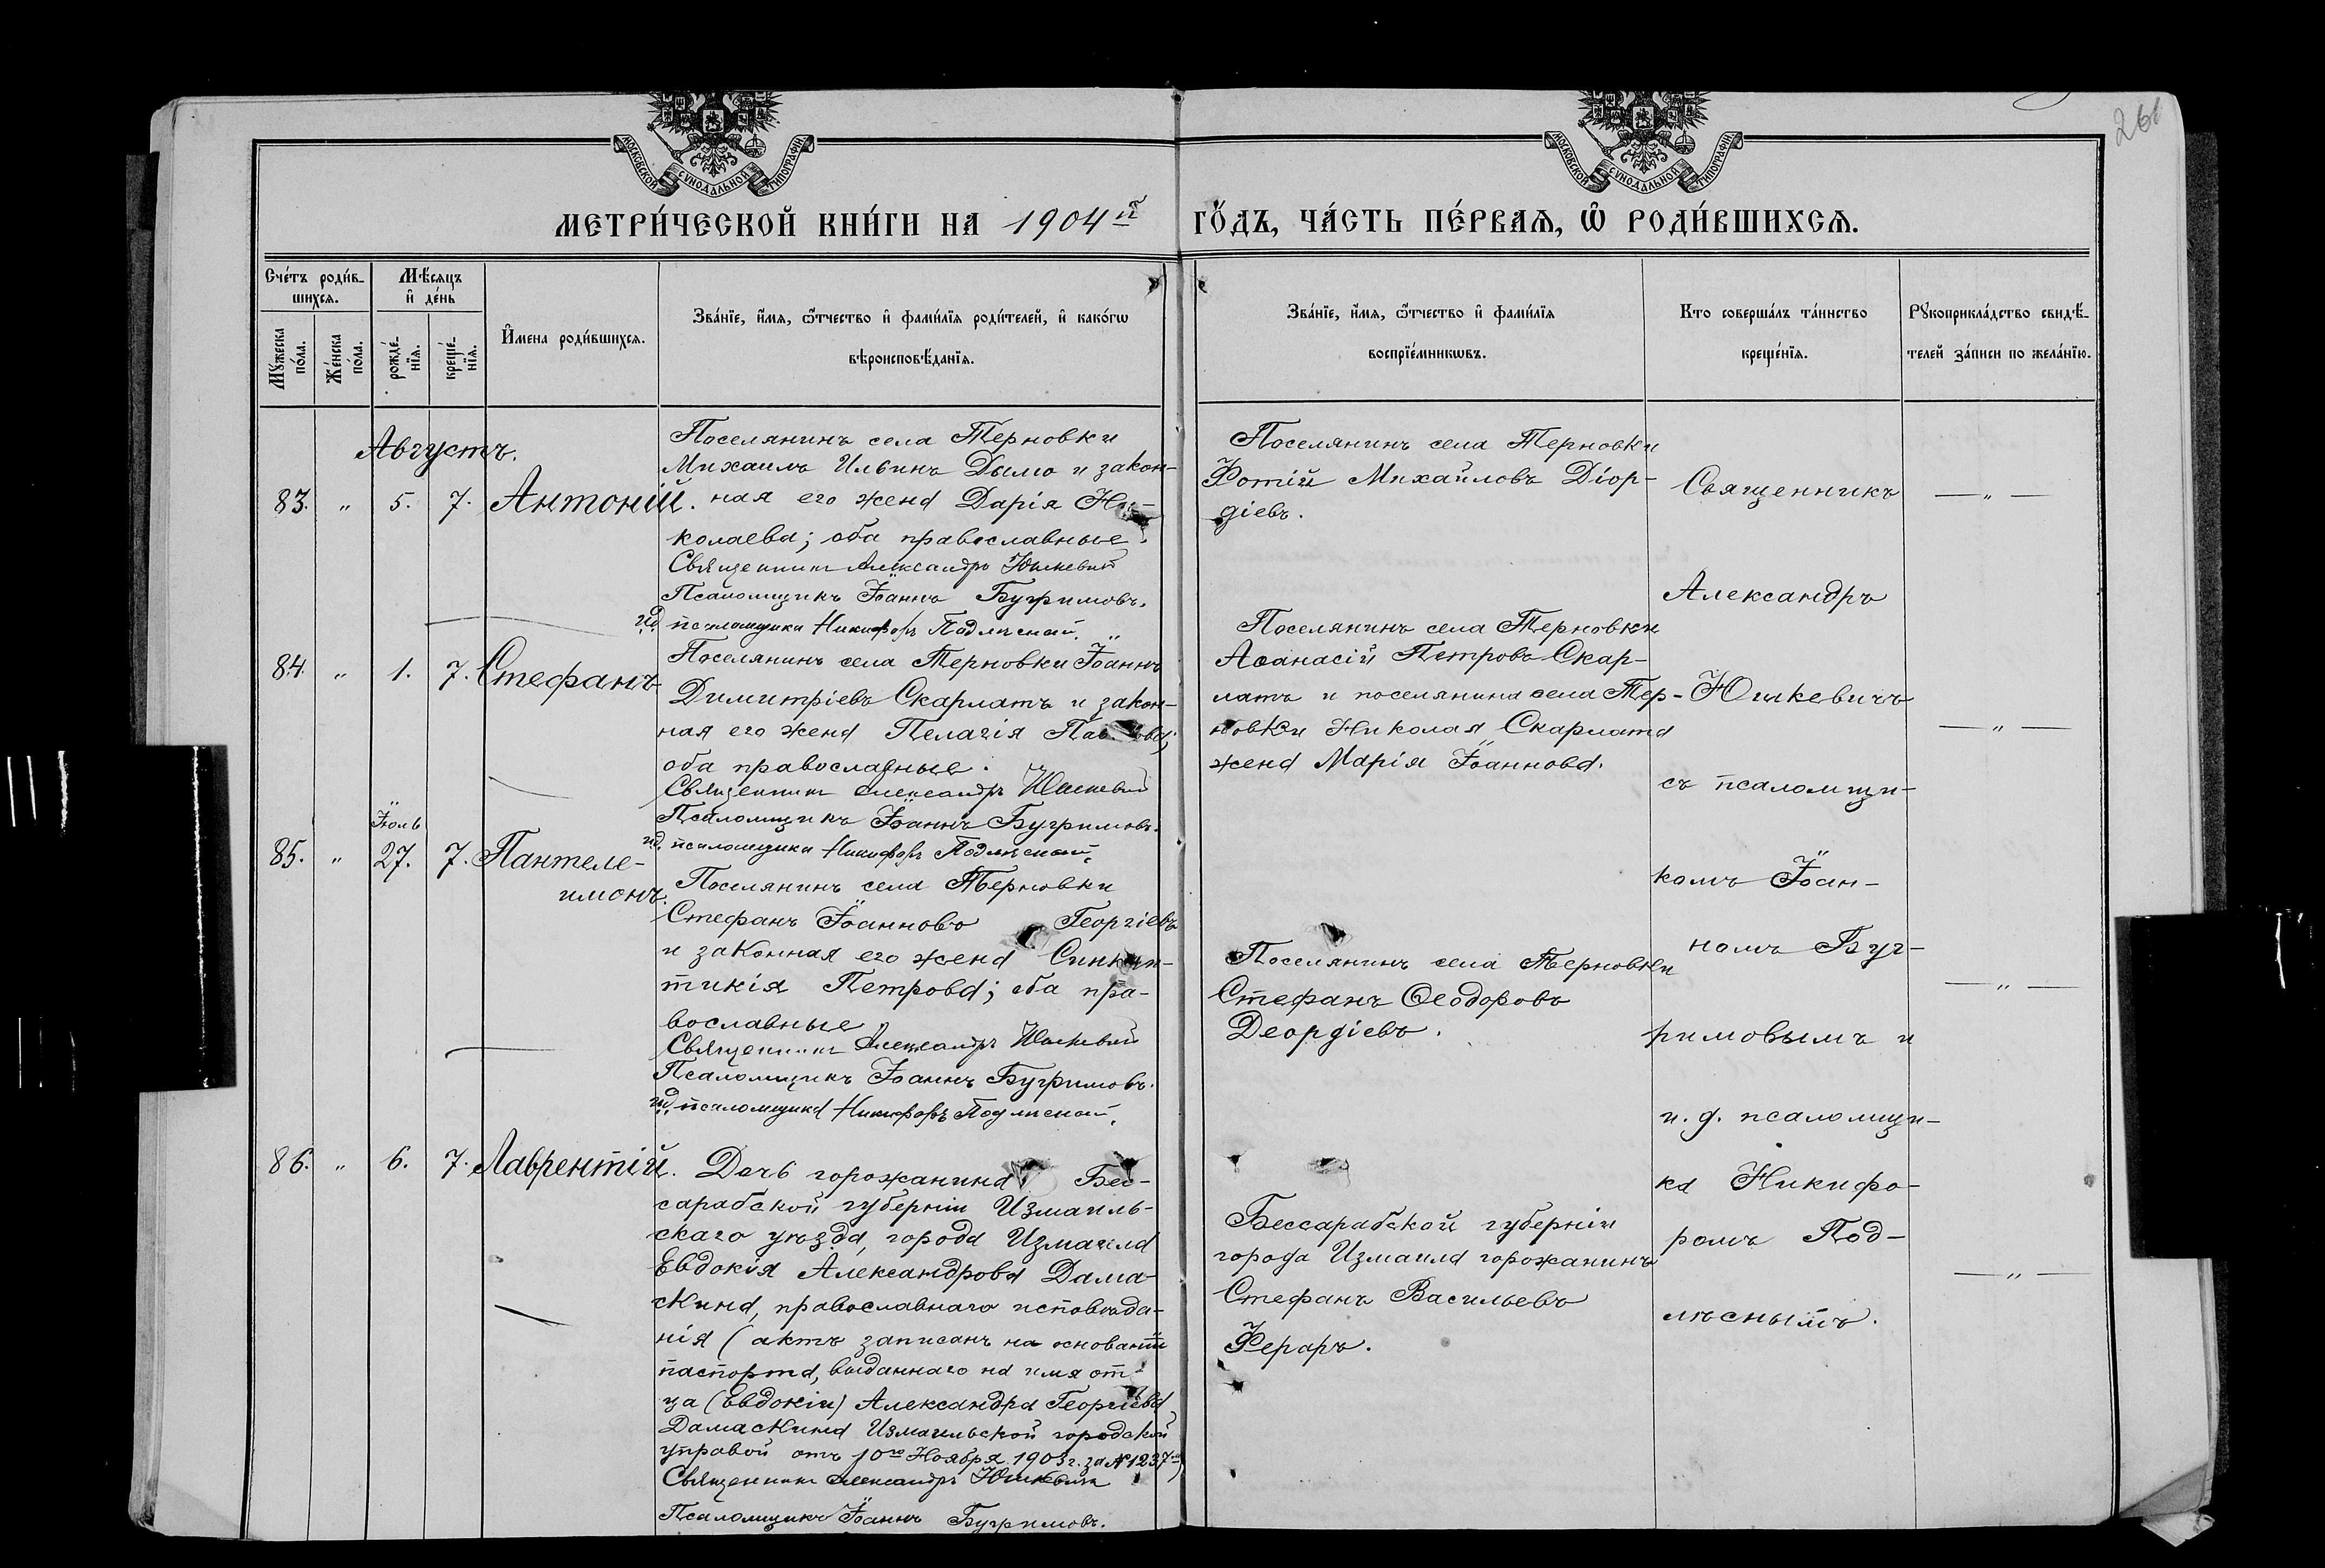 261
МОСКОВСКОЙ СѴНОДАЛЬНОЙ ТИПОГРАФІИ
МОСКОВСКОЙ СѴНОДАЛЬНОЙ ТИПОГРАФІИ
МЕТРИ́ЧЕСКОЙ КНИ́ГИ НА 1904й
ГО́ДЪ, ЧА́СТЬ ПЕ́РВАѦ, Ѡ҆ РОДИ́ВШИХСѦ.
Сче́тъ роди́в-
шихсѧ.
Мꙋ́жеска по́ла.
Же́нска по́ла.
Мѣ́сѧцъ
и҆ де́нь
рожде́-
нїѧ.
креще́-
нїѧ.
И҆мена роди́вшихсѧ.
Зва́нїе, и҆́мѧ, ѻ҆́тчество и҆ фами́лїѧ роди́телей, и҆ како́гѡ
вѣроисповѣ́данїѧ.
Зва́нїе, и҆́мѧ, ѻ҆́тчество и҆ фами́лїѧ
воспрїе́мникѡвъ.
Кто соверша́лъ та́инство
креще́нїѧ.
Рꙋкоприкла́дство свидѣ́-
телей за́писи по жела́нїю.
Августъ.
83. " 5. 7. Антоній.
Поселянинъ села Терновки
Михаилъ Ильинъ Дымо и закон-
ная его жена Дарія Ни-
колаева; оба православные.
Священникъ Александръ Юшкевич
Псаломщикъ Іоаннъ Бугримовъ.
и.д. псаломщика Никифоръ Подлѣсный.
Поселянинъ села Терновки
Фотій Михайловъ Діор-
діевъ.
— " —
84. " 1. 7. Стефанъ
Поселянинъ села Терновки Іоаннъ
Димитріевъ Скарлатъ и закон-
ная его жена Пелагія
оба православные.
Священникъ Александръ Юшкевич
Псаломщикъ Іоаннъ Бугримовъ.
и.д. псаломщика Никифоръ Подлѣсный.
Поселянинъ села Терновки
Аѳанасій Петровъ Скар-
латъ и поселянина села Тер-
новки Николая Скарлата
жена Марія Іоаннова.
— " —
Іюль
85. " 27. 7. Пантеле-
имонъ.
Поселянинъ села Терновки
Стефанъ Іоанновъ Георгіевъ
и законная его жена Синкли-
тикія Петрова; оба пра-
вославные
Священникъ Александръ Юшкевич
Псаломщикъ Іоаннъ Бугримовъ.
и.д. псаломщика Никифоръ Подлѣсный.
Поселянинъ села Терновки
Стефанъ Ѳеодоровъ
Деордіевъ.
— " —
86. " 6. 7. Лаврентій.
Дочь горожанина Бес-
сарабской губерніи Измаиль-
скаго уѣзда, города Измаила
Евдокія Александрова Дама-
скина, православнаго исповѣда-
нія (актъ записанъ на основаніи
паспорта, выданнаго на имя от-
ца (Евдокіи) Александра Георгіева
Дамаскина Измаильской городской
управой отъ 10го Ноября 1903 г. за №1237)
Священникъ Александръ Юшкевич
Псаломщикъ Іоаннъ Бугримовъ.
Бессарабской губерніи
города Измаила горожанинъ
Стефанъ Васильевъ
Фераръ.
— " —
Священникъ
Александръ
Юшкевичъ
съ псаломщи-
комъ Іоан-
номъ Буг-
римовымъ и
и. д. псаломщи-
ка Никифо-
ромъ Под-
лѣснымъ.